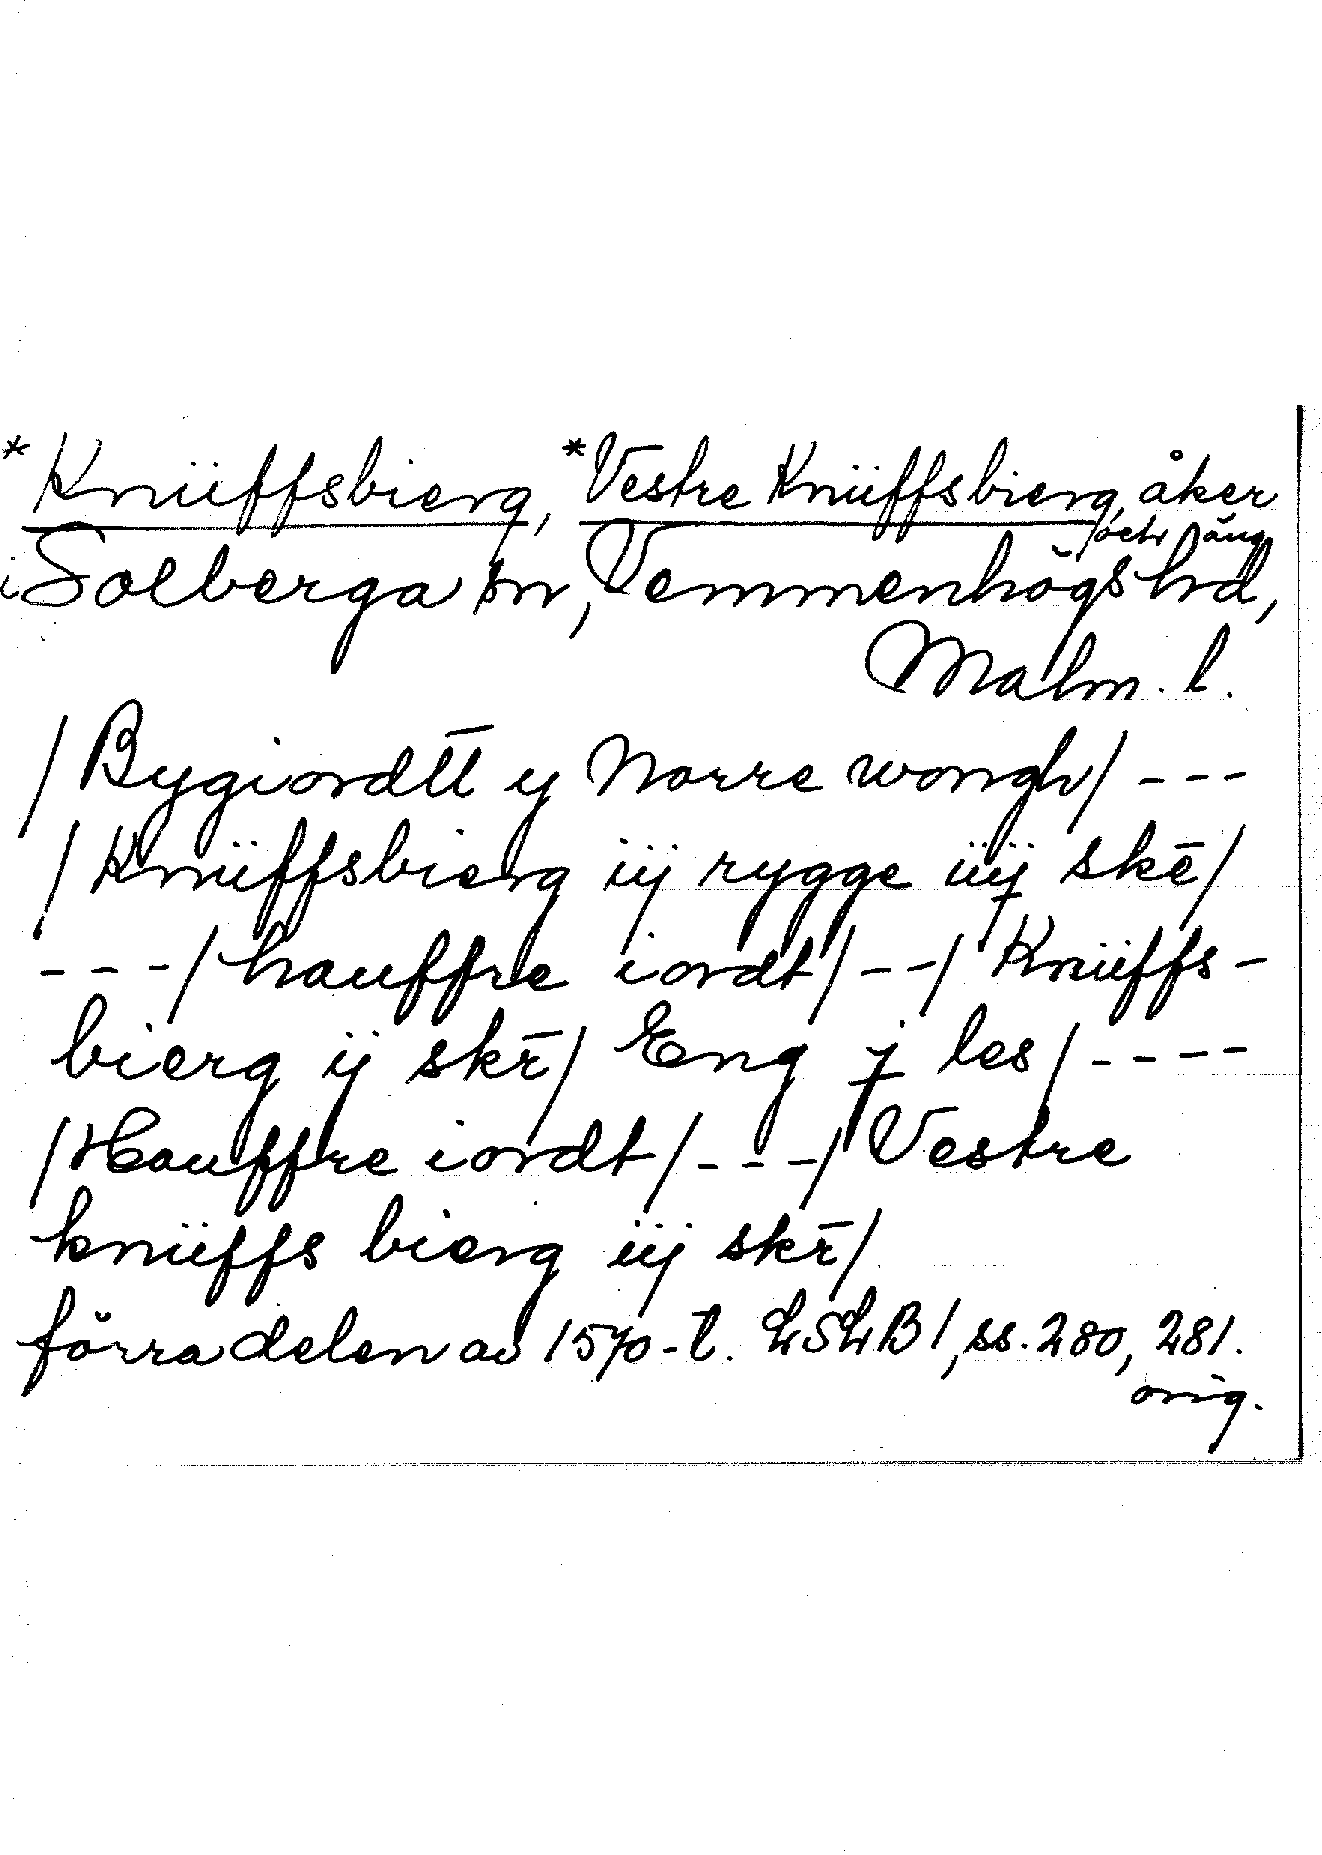 *Knüffsbierg, *Vestre Knüffsbierg, åker
och äng
i Solberga sn, Vemmenhögs hd,
Malm. l.
/Bygiordtt y Norre wongh/ ---
/Knüffsbierg iij rygge iiij skē/
---/hauffre iordt/--/ Knüffs-
bierg ij skr̄/ Eng j les/----
/Hauffre iordt/---/Vestre
knüffs bierg iij skr̄/
förra delen av 1570-t. LSLB 1, ss. 280, 281.
orig.